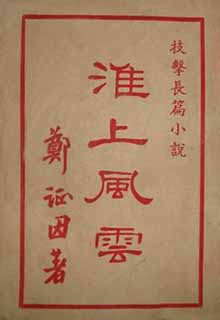 技擊長篇小說
淮上風雲
鄭証因著